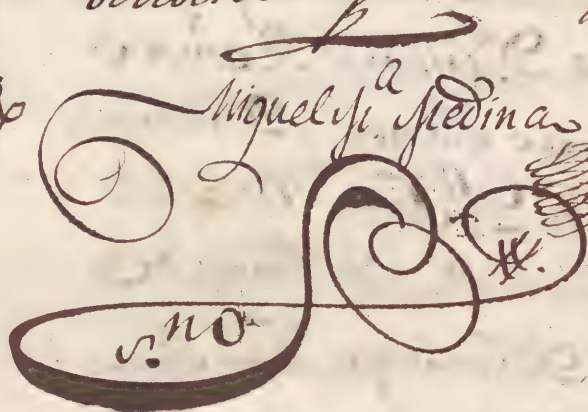 Miguel M.ª Medina
s.no